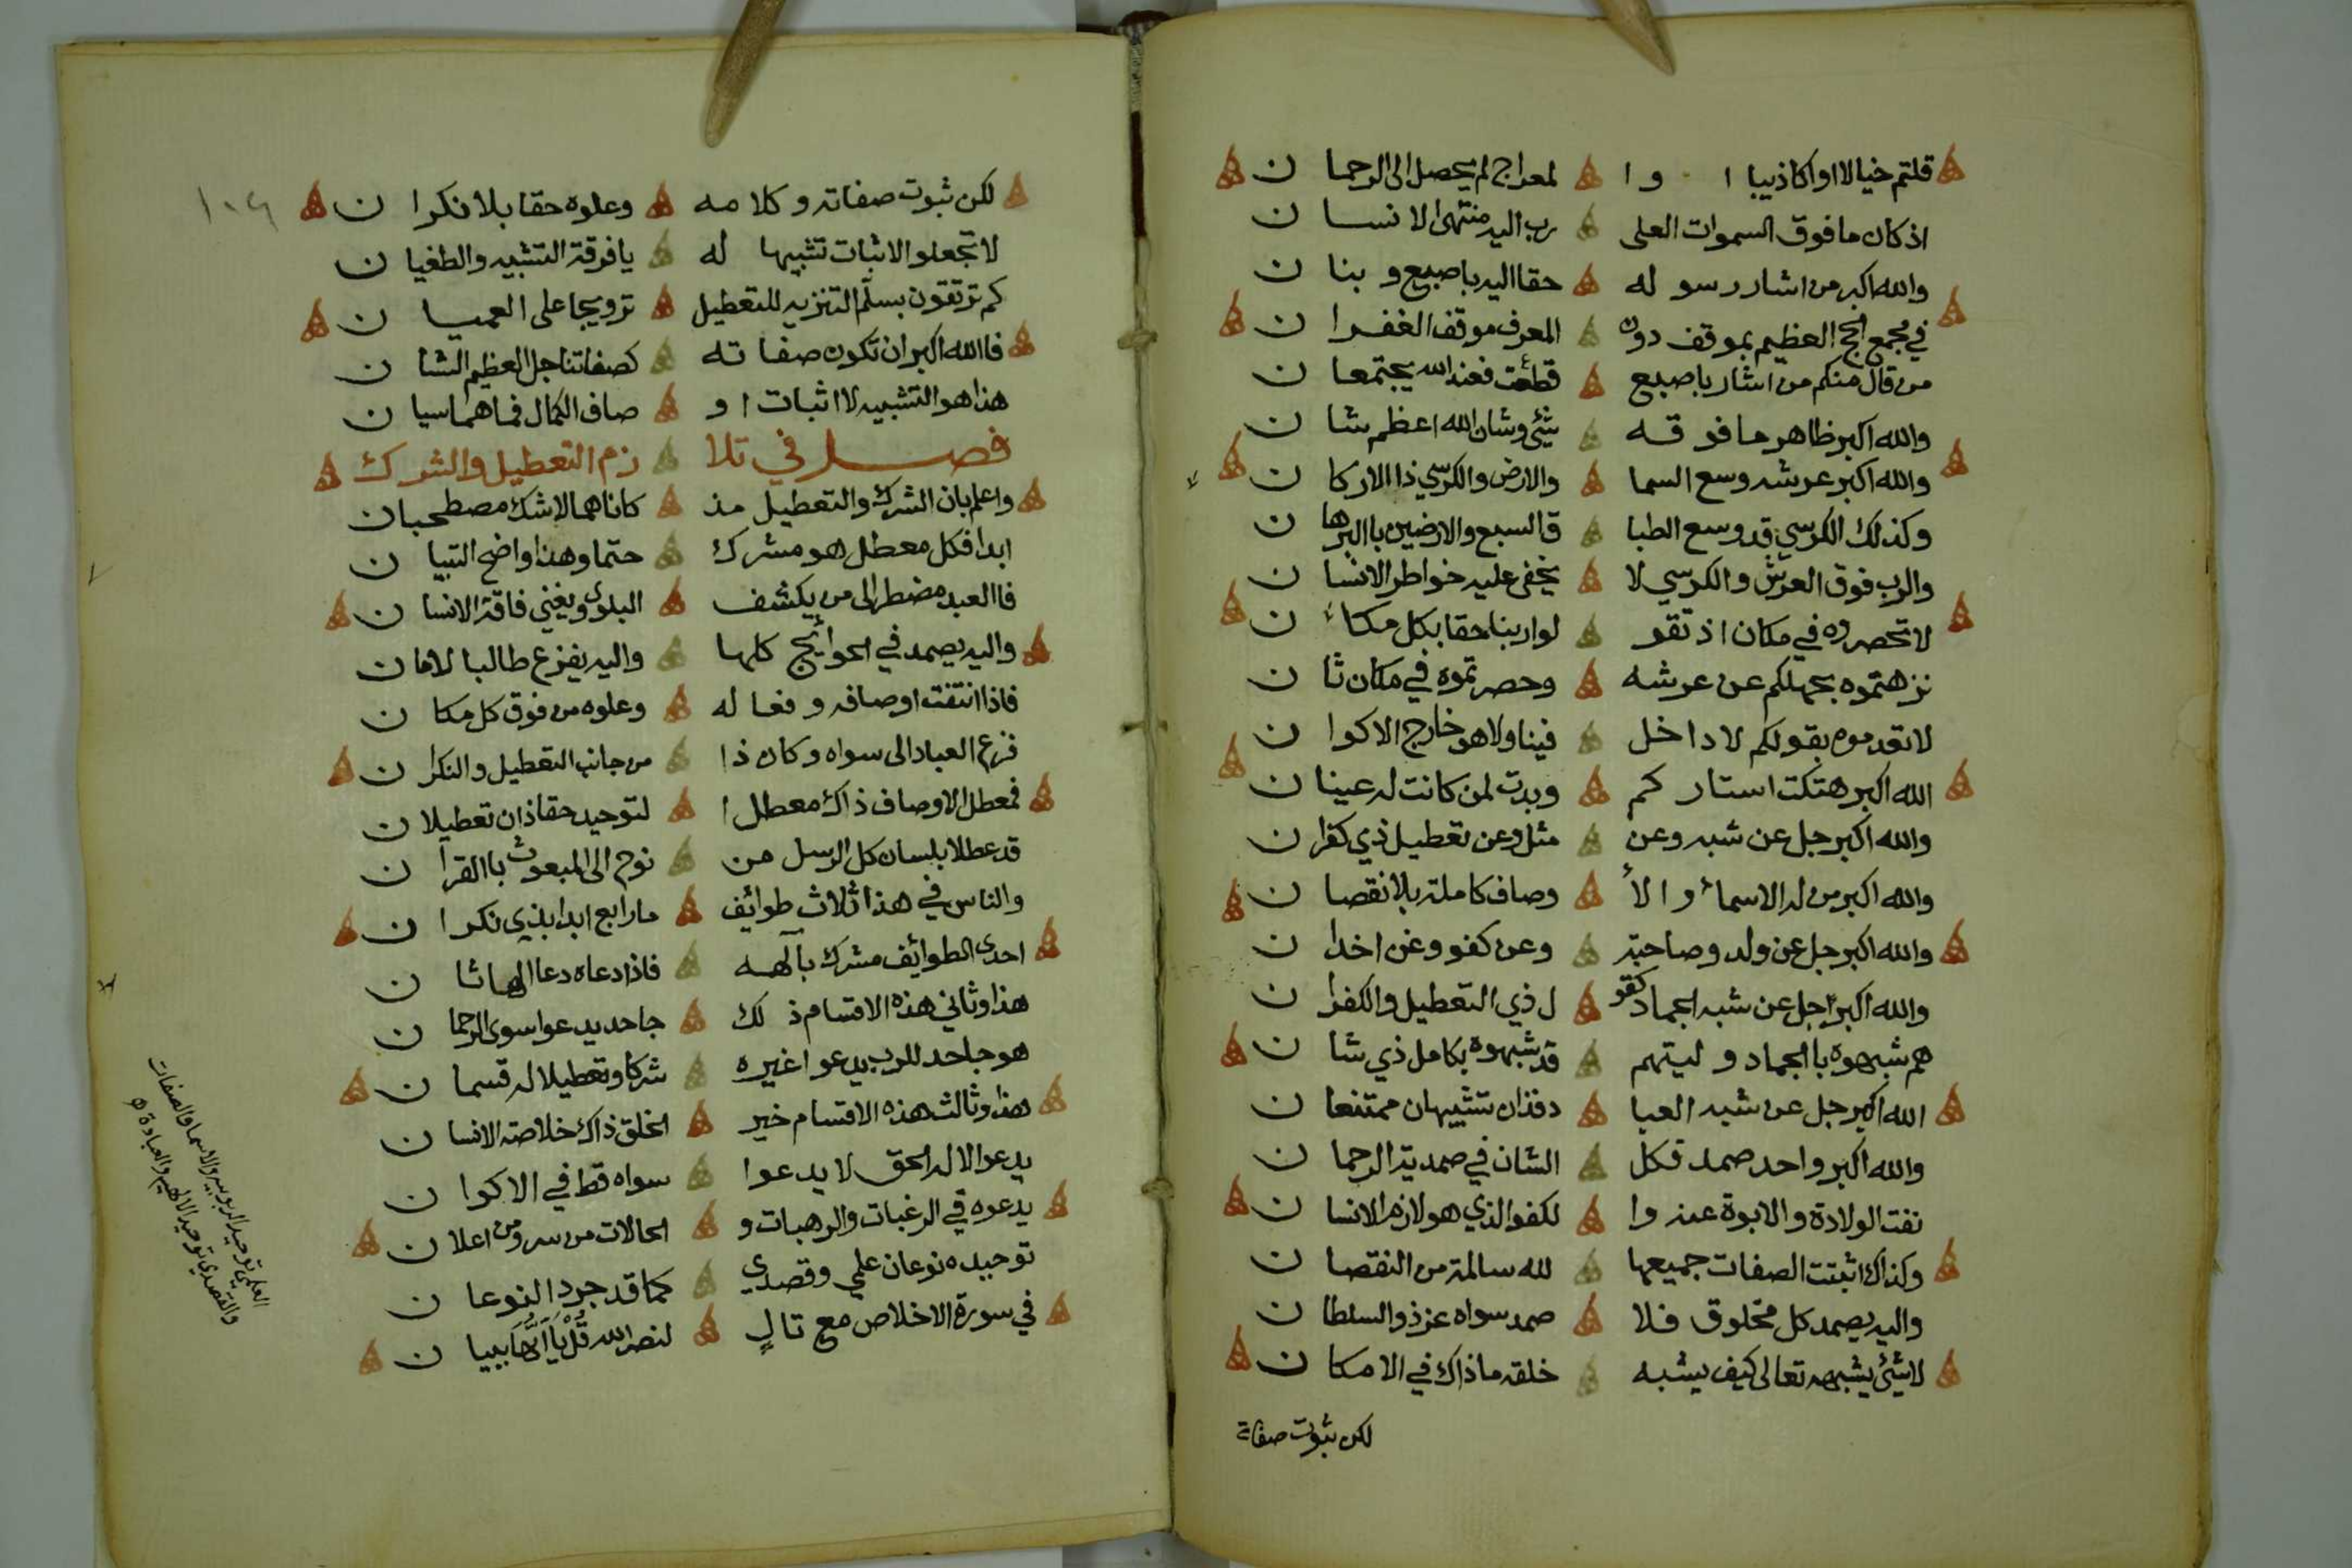 قلتم خيالا او اكاذيبا ا و ا لمعراج لم يحصل الى الرحما ن
اذ كان ما فوق السموات العلى رب اليه منتهى الانسا ن
والله اكبر من اشار رسو له حقا اليه باصبع و بنا ن
في مجمع الحج العظيم بموقف دون المعرف موقف الغفرا ن
من قال منكم من اشار باصبع قطعت فعند الله يجتمعا ن
والله اكبر ظاهر ما فو قه شئ وشان الله اعظم شا ن
والله اكبر عرشه وسع السما والارض والكرسي ذا الاركا ن
وكذلك الكرسي قد وسع الطبا ق السبع والارضين باالبرها ن
والرب فوق العرش والكرسي لا يخفى عليه خواطر الانسا ن
لا تحصروه في مكان اذ تقو لوا ربنا حقا بكل مكا ن
نزهتموه بجهلكم عن عرشه وحصرتموه في مكان ثا ن
لا تعدموه بقولكم لا داخل فينا ولا هو خارج الاكوا ن
الله اكبر هتكت استار كم وبدت لمن كانت له عينا ن
والله اكبر جل عن شبه وعن مثل وعن تعطيل ذي كفرا ن
والله اكبر من له الاسماء و الأ وصاف كاملة بلا نقصا ن
والله اكبر جل عن ولد وصاحبة وعن كفو وعن اخدا ن
والله اكبر جل عن شبه الجماد كقو ل ذي التعطيل والكفرا ن
هم شبهوه باالجماد و ليتهم قد شبهوه بكامل ذي شا ن
الله اكبر جل عن شبه العبا د فذان تشبيهان ممتنعا ن
والله اكبر واحد صمد فكل الشان في صمدية الرحما ن
نفت الولادة والابوة عنه وا لكفو الذي هو لازم الانسا ن
وكذاك اثبتت الصفات جميعها لله سالمة من النقصا ن
واليه يصمد كل مخلوق فلا صمد سواه عز ذو السلطا ن
لا شئ يشبهه تعالى كيف يشبه خلقه ما ذاك في الامكا ن
لكن ثبوت صفاته
١٠٤
لكن ثبوت صفاته و كلا مه وعلوه حقا بلا نكرا ن
لا تجعلوا الاثبات تشبيها له يا فرقة التشبيه والطغيا ن
كم ترتقون بسلّم التنزيه للتعطيل ترويجا على العميا ن
فاالله اكبر ان تكون صفا ته كصفاتنا جل العظيم الشا ن
هذا هو التشبيه لا اثبات ا و صاف الكمال فما هما سيا ن
فصل في تلا زم التعطيل والشرك
واعلم بان الشرك والتعطيل مذ كانا هما لا شك مصطحبا ن
ابدا فكل معطل هو مشرك حتما وهذا واضح التبيا ن
فاالعبد مضطر الى من يكشف البلوى ويغني فاقة الانسا ن
واليه يصمد في الحوائج كلها واليه يفزع طالبا لاما ن
فاذا انتفت اوصافه و فعا له وعلوه من فوق كل مكا ن
فزع العباد الى سواه وكان ذا من جانب التعطيل والنكرا ن
فمعطل الاوصاف ذاك معطل ا لتوحيد حقا ذان تعطيلا ن
قد عطلا بلسان كل الرسل من نوح الى المبعوث باالقرا ن
والناس في هذا ثلاث طوائف ما رابع ابدا بذي نكرا ن
احدى الطوائف مشرك بآلهه فاذا دعاه دعا الها ثا ن
هذا وثاني هذه الاقسام ذ لك جاحد يدعو اسوى الرحما ن
هو جاحد للرب يدعوا غيره شركا وتعطيلا له قسما ن
هذا وثالث هذه الاقسام خير الخلق ذاك خلاصة الانسا ن
يدعو الاله الحق لا يدعوا سواه قط في الاكوا ن
يدعوه في الرغبات والرهبات و الحالات من سر ومن اعلا ن
توحيده نوعان علمي وقصدي كما قد جرد النوعا ن
في سورة الاخلاص مع تالٍ لنصر الله قُلْ يَا أَيُّهَا ببيا ن
العلمي توحيد الربوبيه والاسما والصفات
والقصدي توحيد الالهيه والعبادة